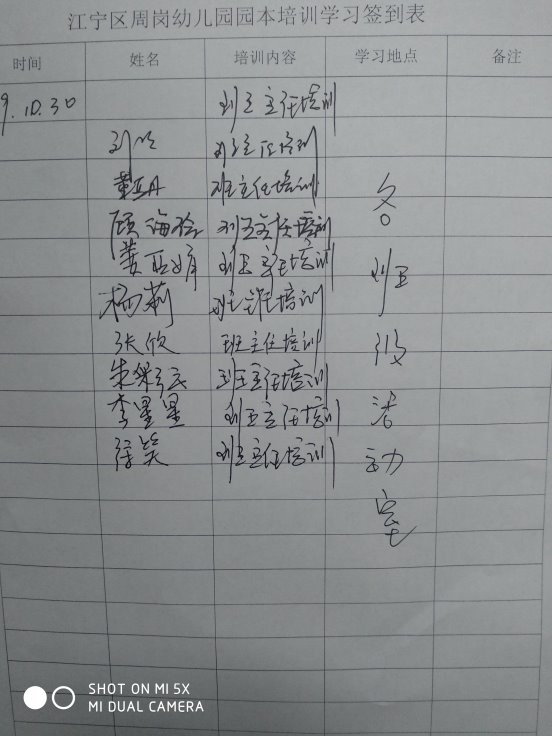 江宁区周岗幼儿园园本培训学习签到表
时间 姓名 培训内容 学习地点 备注
9.10.30 班主任培训
班主任培训
班主任培训
顾海玲 班主任培训
姜亚婷 班主任培训
杨莉 班主任培训
张欣 班主任培训
班主任培训
李星星 班主任培训
徐笑 班主任培训
各
班
级
活
动
室
SHOT ON MI 5X
MI DUAL CAMERA